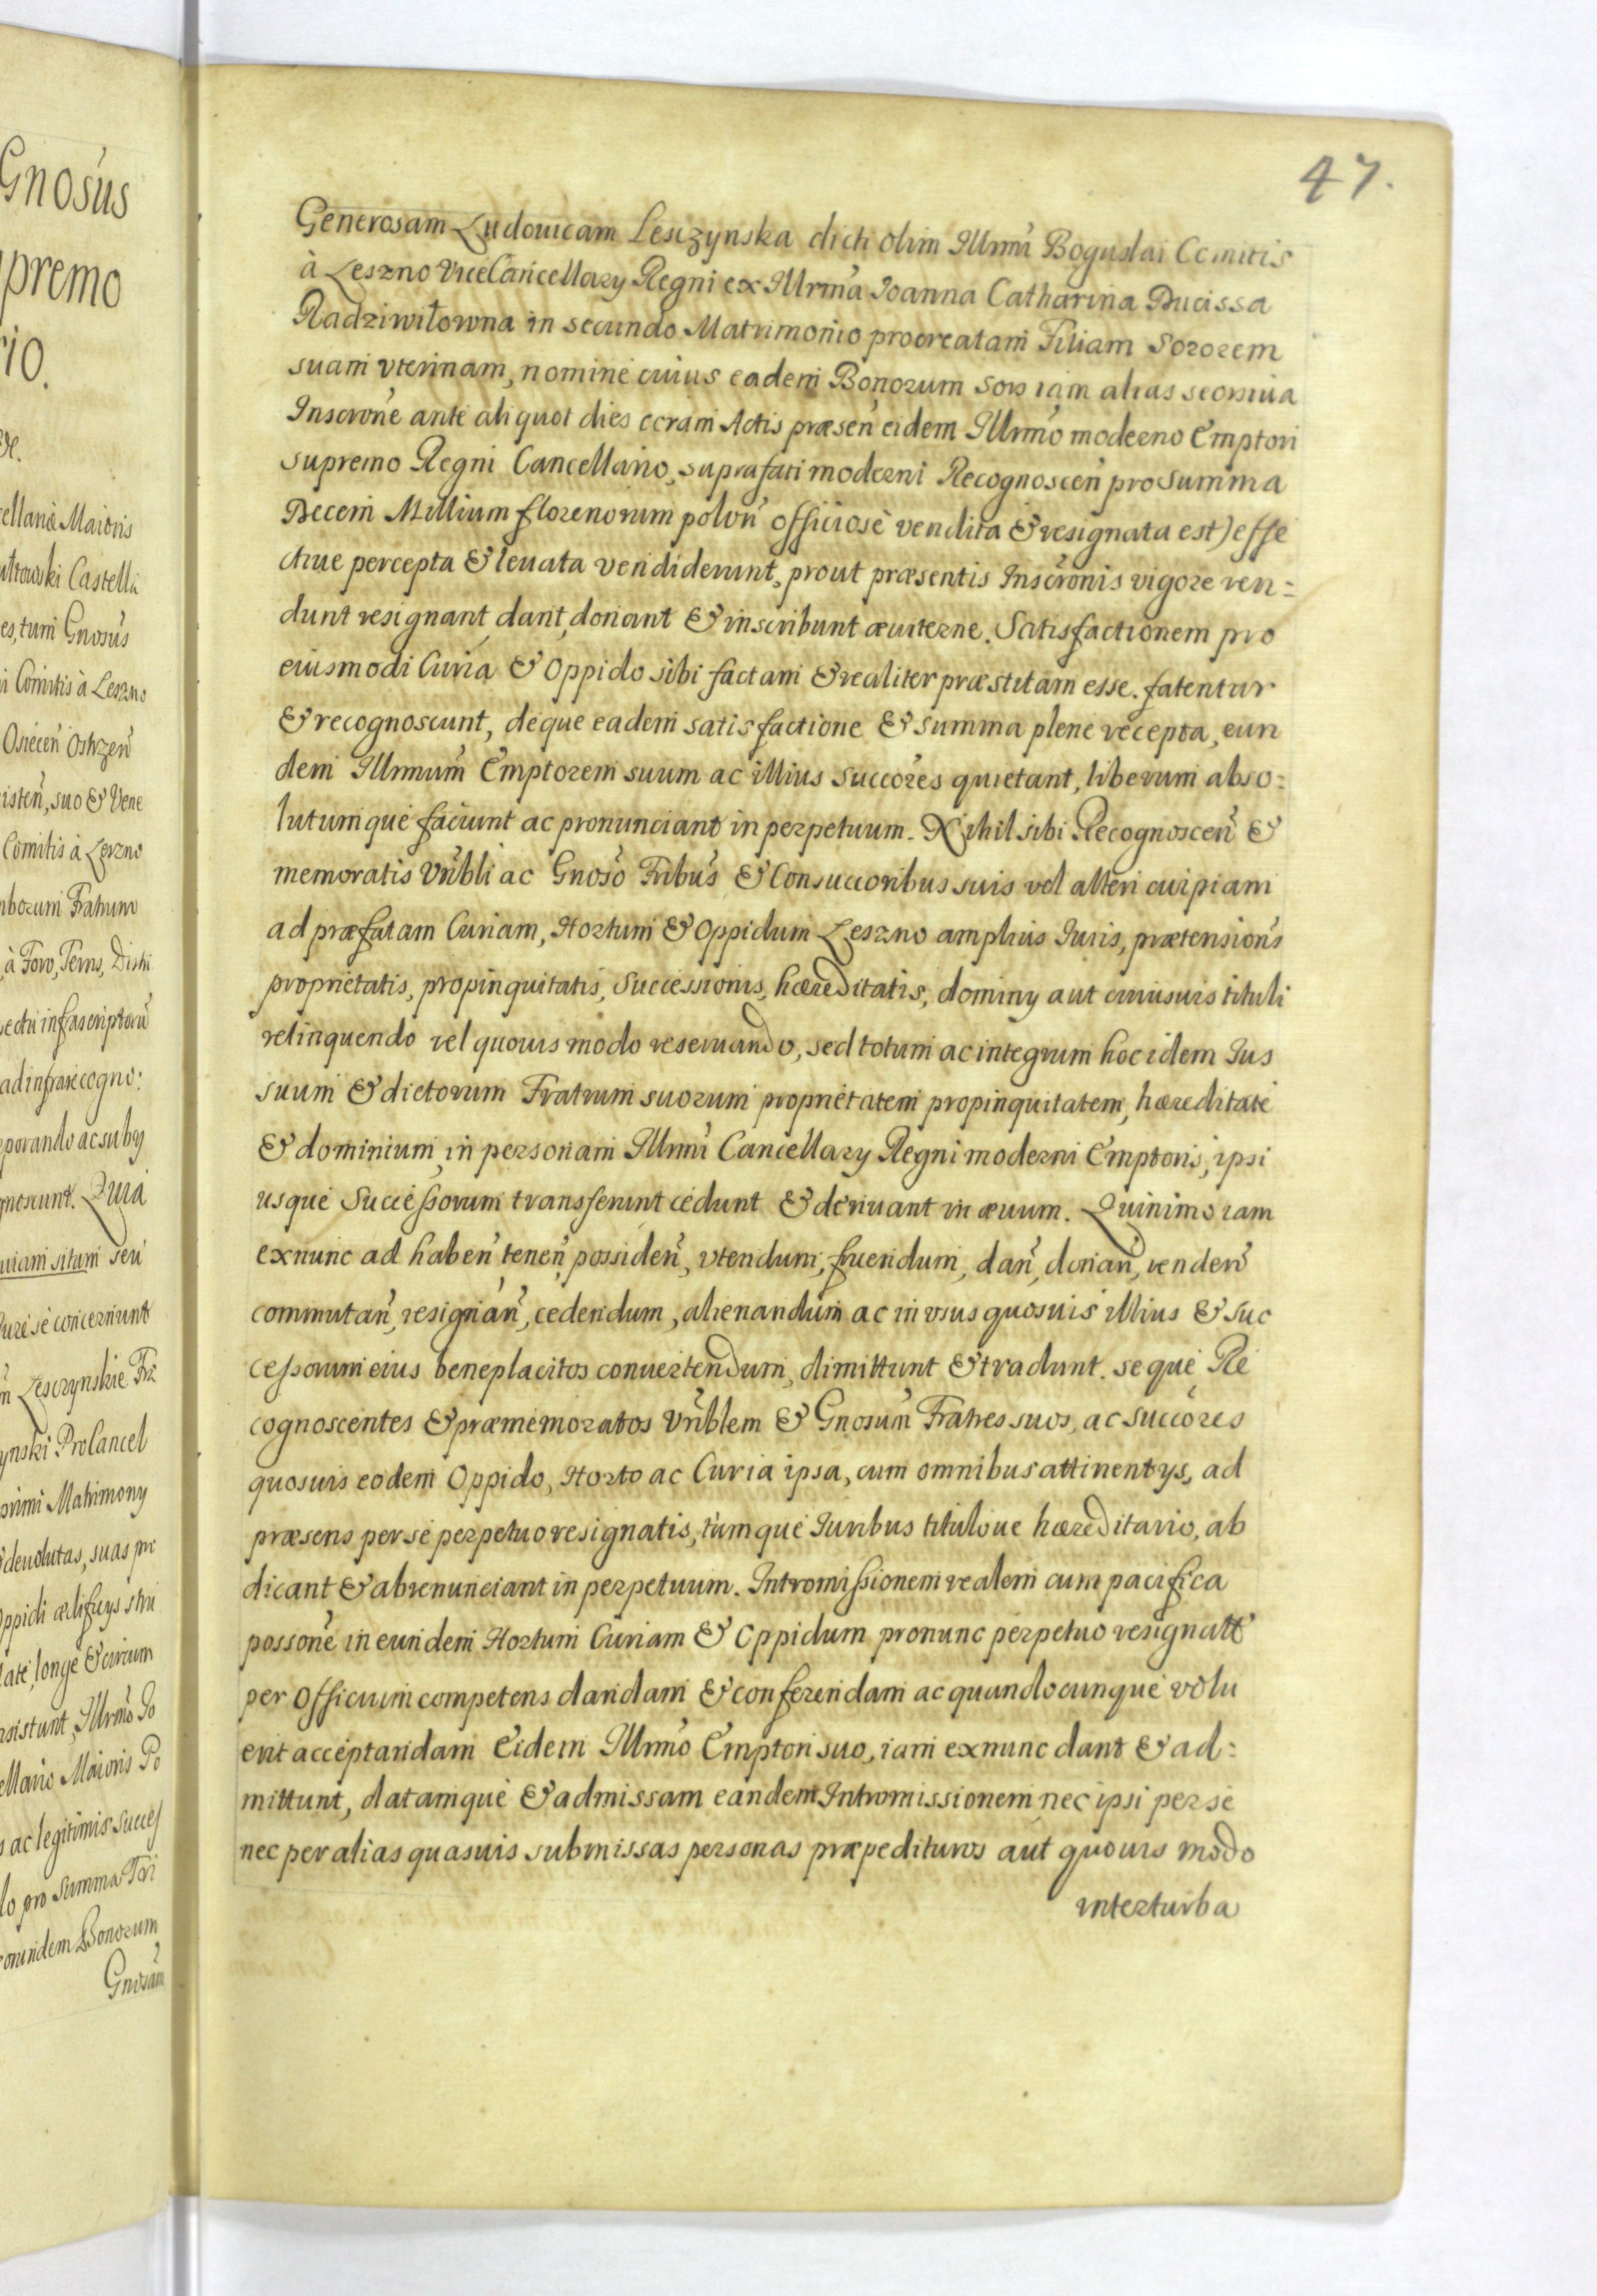 47.
Generosam Ludouicam Lesczynska dicti olim Illrmi Boguslai Comitis
à Leszno ViceCancellary Regni ex Illrma Ioanna Catharina Ducissa
Radziwiłowna in secundo Matrimonio procreatam Filiam Sororem
suam vterinam, nomine cuius eadem Bonorum Sors iam alias seorsiua
Inscrone ante aliquot dies coram Actis præsen eidem Illrmo moderno Emptori
supremo Regni Cancellario, suprafati moderni Recognoscen pro Summa
Decem Millium florenorum polon officiose vendita & resignata est) effe
ctiue percepta & leuata vendiderunt, prout præsentis Inscronis vigore ven=
dunt resignant dant, donant & inscribunt æuiterne. Satisfactionem pro
eiusmodi Curia & Oppido sibi factam & realiter præstitam esse. fatentur
& recognoscunt, deque eadem satisfactione & summa plene recepta, eun
dem Illrmum Emptorem suum ac illius Succores quietant, liberum abso=
lutumque faciunt ac pronunciant in perpetuum. Nihil sibi Recognoscen &
memoratis Vrìbli ac Gnoso Fribus & Consuccoribus suis vel alteri cuipiam
ad præfatam Curiam, Hortum & Oppidum Leszno amplius Iuris, prætensions
proprietatis, propinquitatis, Successionis, hæreditatis, dominy aut cuiusuis tituli
relinquendo vel quouis modo reseruando, sed totum ac integrum hoc idem Ius
suum & dictorum Fratrum suorum proprietatem propinquitatem, hæreditate
& dominium, in personam Illrmi Cancellary Regni moderni Emptoris, ipsi
usque Successorum transferunt cedunt & deriuant in æuum. Quinimo iam
exnunc ad haben tenen possiden, vtendum, fruendum, dan, donan, venden
commutan, resignan, cedendum, alienandum ac in vsus quosuis illius & Suc
cessorum eius beneplacitos conuertendum, dimittunt & tradunt. seque Re
cognoscentes & præmemoratos Vrìblem & Gnosum Fratres suos, ac succores
quosuis eodem Oppido, Horto ac Curia ipsa, cum omnibus attinentys, ad
præsens per se perpetuo resignatis, tumque Iuribus tituloue hæreditario, ab
dicant & abrenunciant in perpetuum. Intromissionem realem cum pacifica
possone in eundem Hortum Curiam & Oppidum pronunc perpetuo resignatt
per Officium competens dandam & conferendam ac quandocunque volu
erit acceptandam Eidem Illrmo Emptori suo, iam exnunc dant & ad=
mittunt, datamque & admissam eandem Intromissionem nec ipsi per se
nec per alias quasuis submissas personas præpedituros aut quouis modo
interturba
Gnosus
premo
io.
ellariæ Maioris
Castella
es, tum Gnosus
i Comitis à Leszno
Osiecen Ostrzen
isten, suo & Vene
Comitis à Leszno
Fratrum
à Foro, Terris, Distri
ectu infrascriptoru
ad infra recogno:
porando ac suby
gnoscunt. Quia
uiam sitam seu
ure se concernunt
Lesczynskie Frz
ynski ProCancel
primi Matrimony
deuolutas, suas pr
ppidi ædificys stru
late, longe & circum
sistunt, Illrmo Jo
ellario Maioris Po
s ac legitimis succes
lo pro summa Tri
orundem Bonorum
Gnosam